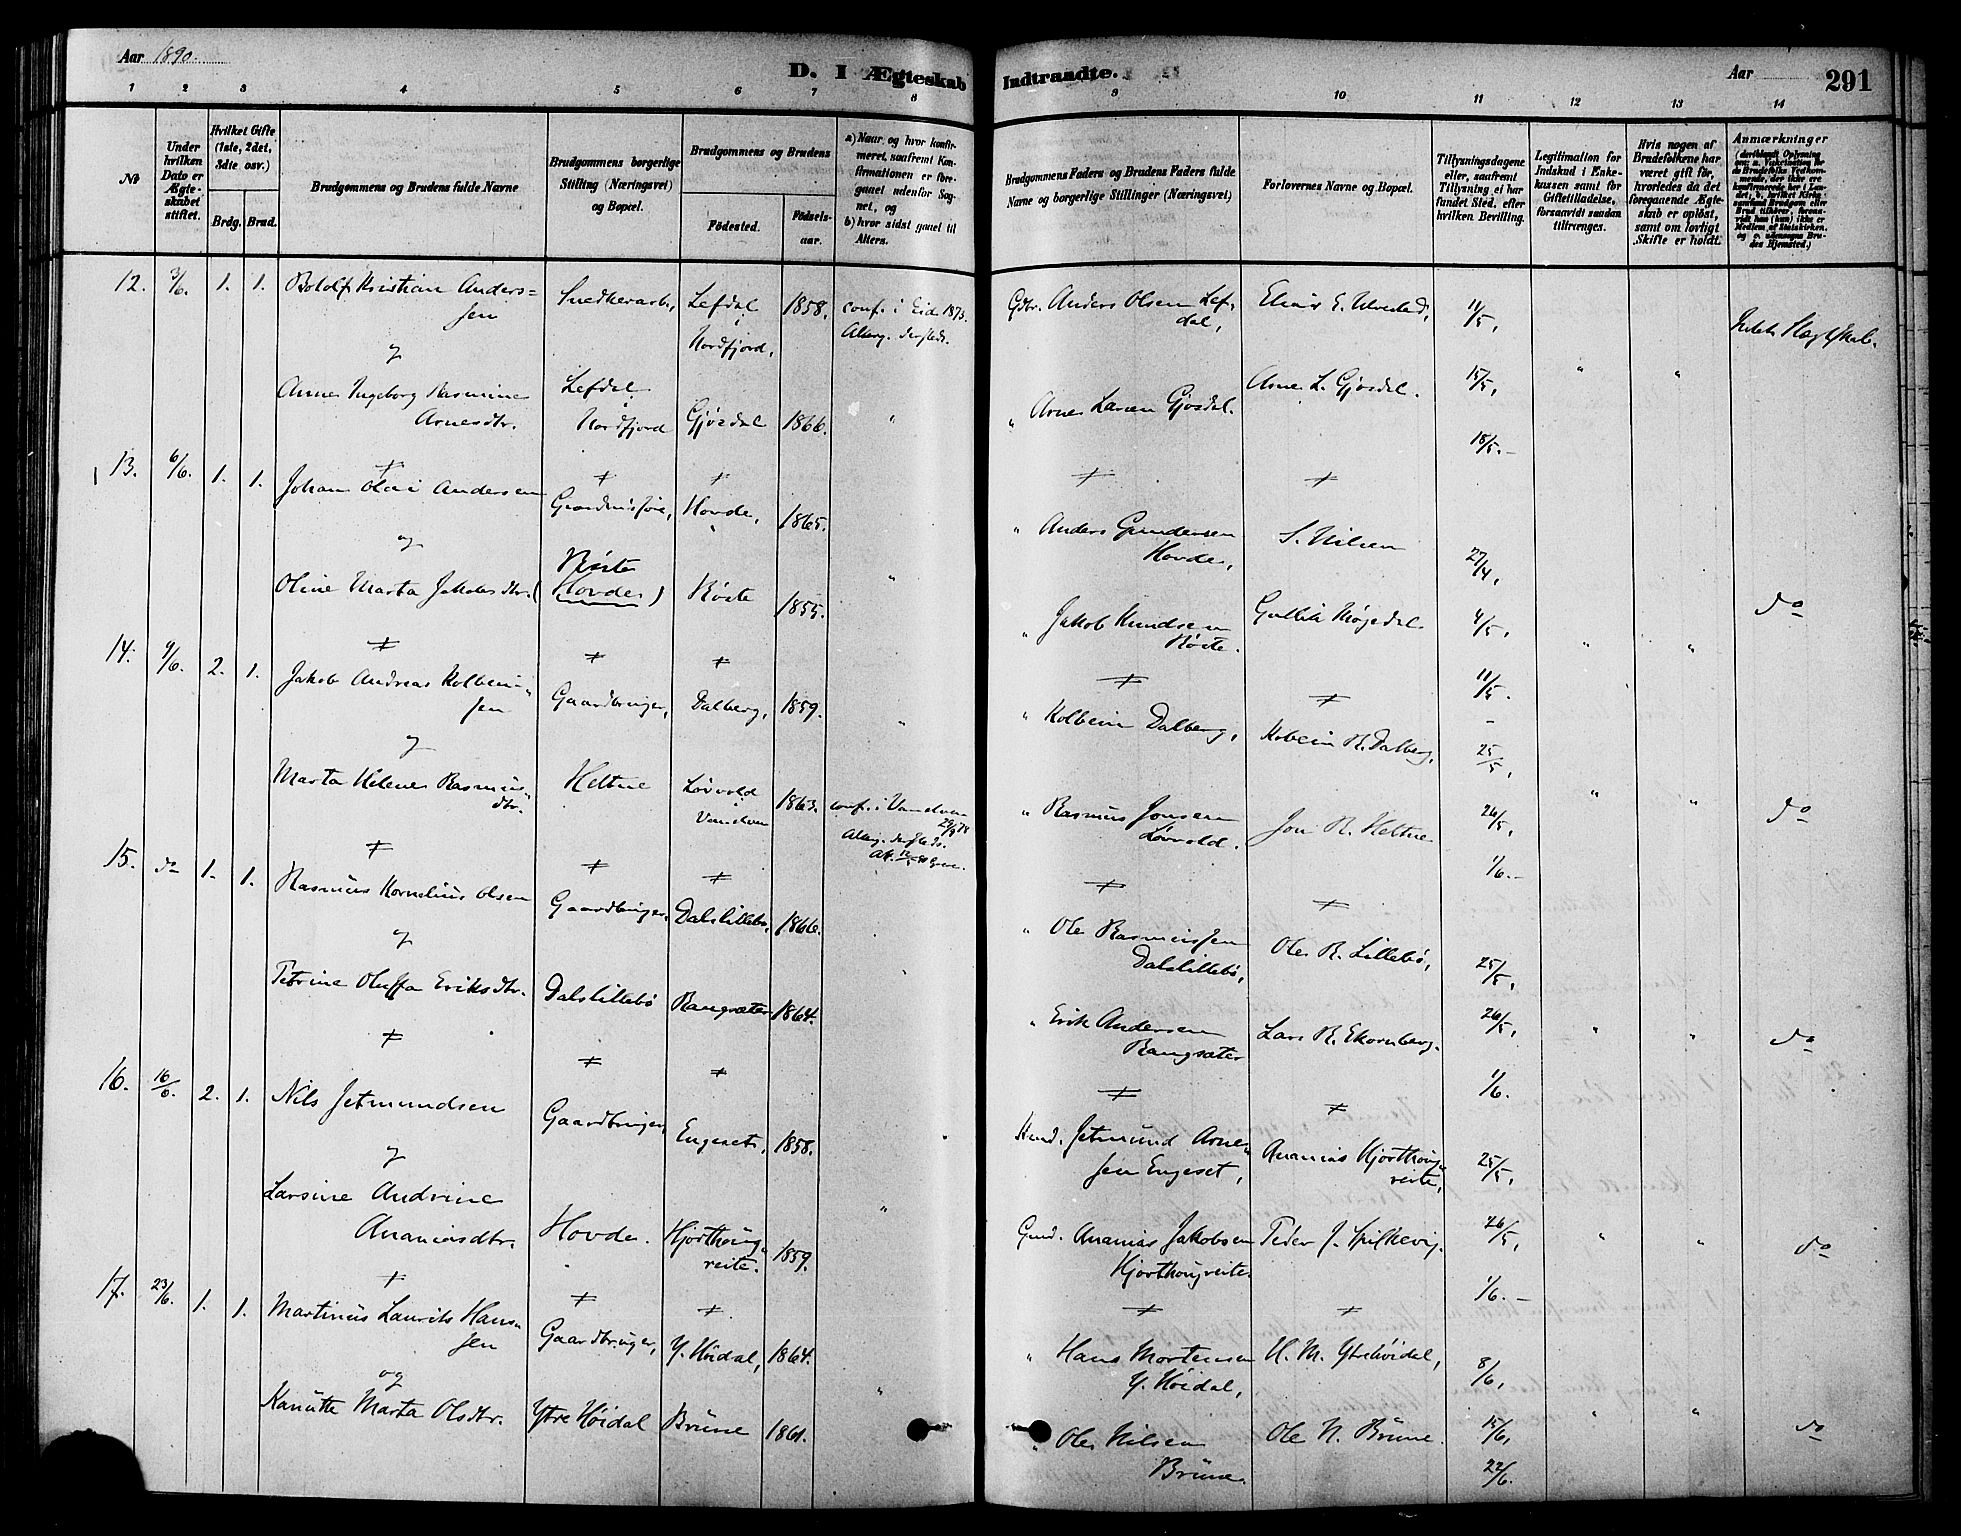 Aar 1890.
D. I Ægteskab Indtraadte.
Aar
291
1 2 3 4 5 6 7 8 9 10 11 12 13 14
No
Under hvilken Dato er Ægteskabet stiftet.
Hvilket Gifte (1ste, 2det, 3die osv.)
Brdg. Brud.
Brudgommens og Brudens fulde Navne
Brudgommens borgerlige Stilling (Næringsvei) og Bopæl.
Brudgommens og Brudens
Födested.
Födselsaar.
a) Naar og hvor konfirmeret, saafremt Konfirmationen er foregaaet udenfor Sognet, og
b) hvor sidst gaaet til Alters.
Brudgommens Faders og Brudens Faders fulde Navne og borgerlige Stillinger (Næringsvei)
Forlovernes Navne og Bopæl.
Tillysningsdagene eller, saafremt Tillysning ei har fundet Sted, efter hvilken Bevilling.
Legitimation for Indskud i Enkekassen samt for Giftetilladelse, forsaavidt saadan tiltrænges.
Hvis nogen af Brudefolkene har været gift för, hvorledes da det foregaaende Ægteskab er oplöst, samt om lovligt Skifte er holdt.
Anmærkninger
12. 3/6. 1. 1. Botolf Kristian Andersen Snedkerarb., Lefdal i Nordfjord, 1858, conf. i Eid 1873. Alterg. dersteds.
Gbr. Anders Olsen Lefdal, Elias E. Ulvestad, 11/5,
og
Anne Ingeborg Rasmine Arnesdtr. Lefdal i Nordfjord Gjösdal 1866. "
" Arne Larsen Gjösdal. Arne L. Gjösdal. 15/5, " "
18/5.-
13. 6/6. 1. 1. Johan Olai Andersen Hovde, 1865.
" Anders Gundersen Hovde, S. Nilsen 27/4,
og
Oline Marta Jakobsdtr. (Hovde) Röste 1855. "
" Jakob Knudsen Röste. 4/5, " " do
11/5.
14. 9/6. 2. 1. Jakob Andreas Kolbeinsen Gaardbruger, Dalberg, 1859. "
" Kolbein Dalberg, Kobein R. Dalberg, 25/5,
og
Marta Helene Rasmusdtr. Heltne Lövold Vanelven 1863. conf. i Vanelven
" Rasmus Jonsen Lövold. Jon R. Heltne 26/5, " " do
1/6.-
15. do 1. 1. Rasmus Kornelius Olsen Gaardbruger, Dalslillebö, 1866.
" Ole Rasmussen Dalslillebö, Ole R. Lillebö, 25/5,
og
Petrine Oluffa Eriksdtr. Dalslillebö Rangsæter 1864.
" Erik Andersen Rangsæter Lars R. Ekornberg. 26/5, " " do
1/6.
16. 16/6. 2. 1. Nils Jetmundsen Gaardbruger, Engeset, 1858.
Jetmund Arnesen Engeset, Ananias Hjorthougreite, 25/5,
og
Larsine Andrine Ananiasdtr. Hovde. Hjorthougreite. 1859. "
Ananias Jakobsen Hjorthougreite. Peder J. Spilkevig. 26/5, " " do
1/6.-
17. 23/6. 1. 1. Martinus Laurits Hansen Gaardbruger, Y. Höidal, 1864.
" Hans Mortensen Y. Höidal, H. M. Ytrehöidal, 8/6,
og
Kanutte Marta Olsdtr. Ytre Höidal Brune 1861. "
" Ole Nilsen Brune. Ole N. Brune. 15/6, " " do
22/6.